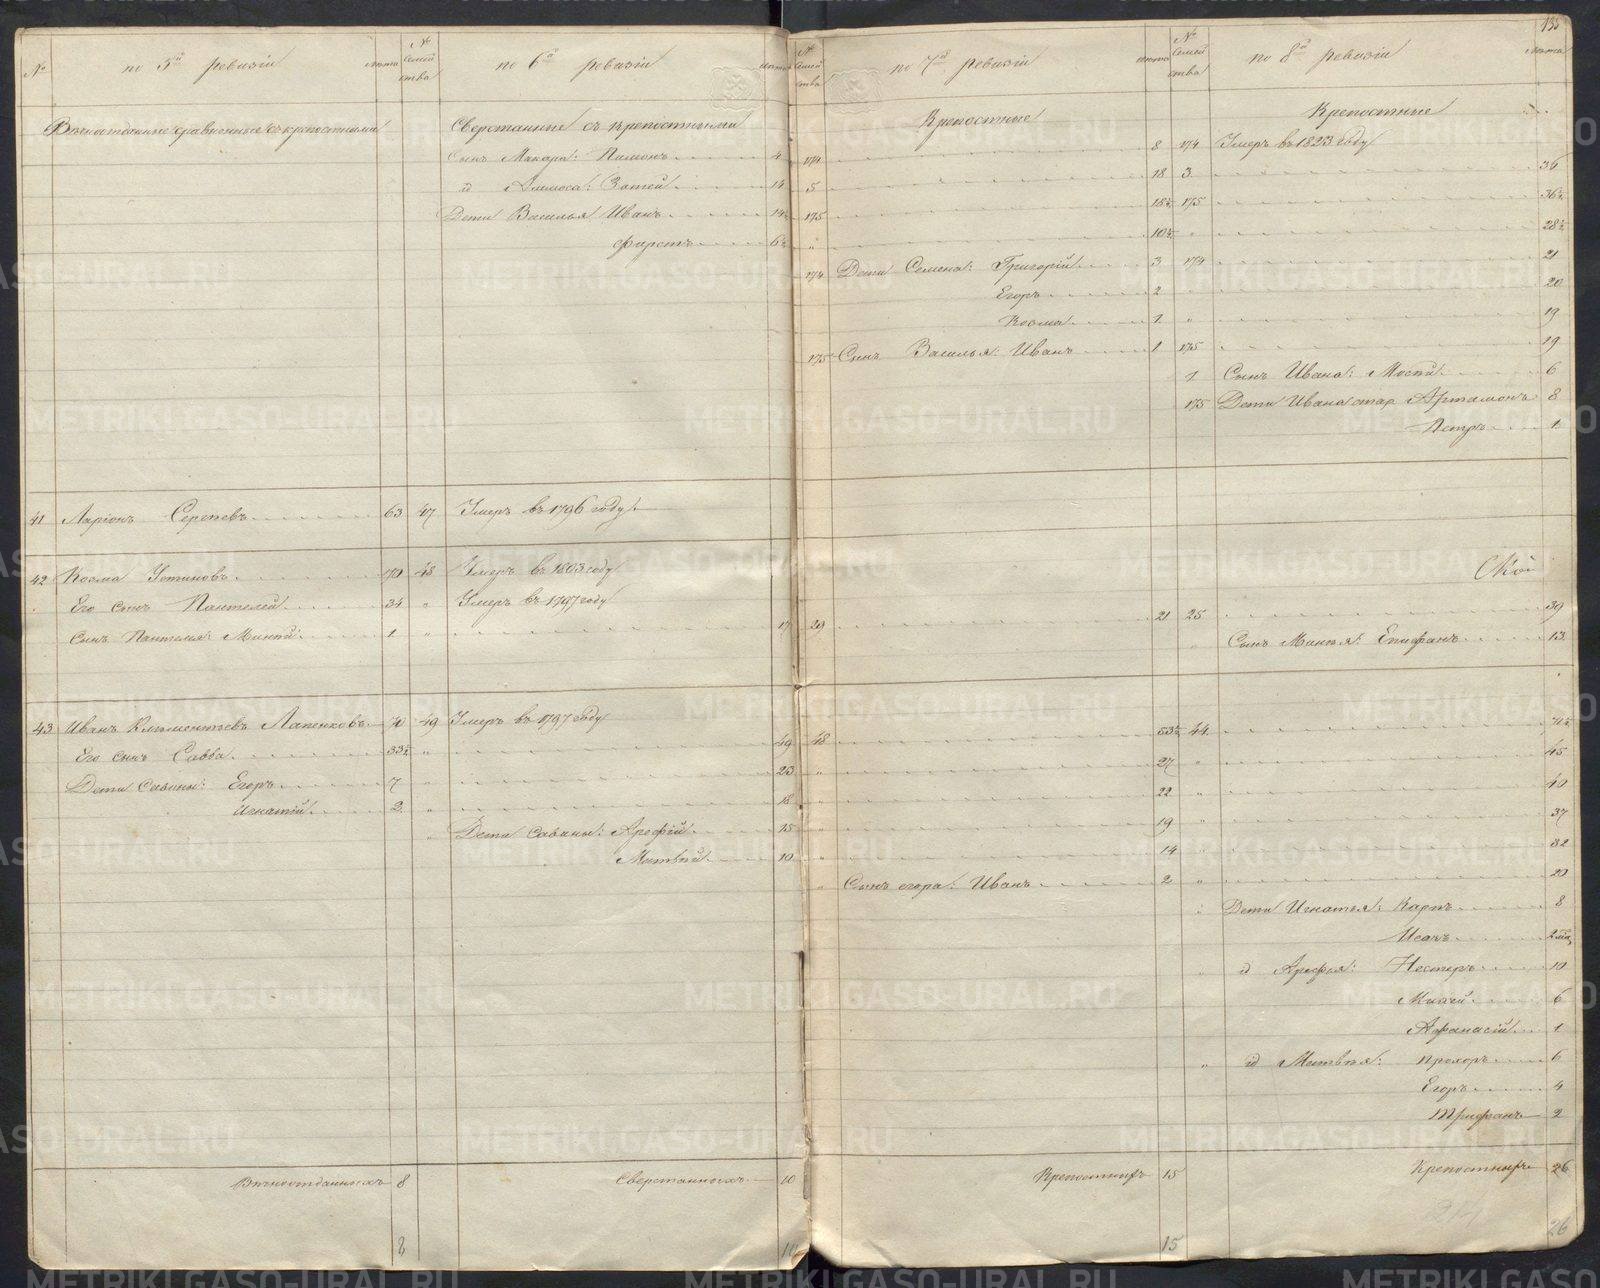 135
№ по 5й ревизіи лѣта № Семейства по 6й ревизіи лѣта № Семейства по 7й ревизіи лѣта № Семейства по 8й ревизіи лѣта
Вѣчноотданные сравненные съ крепостными Сверстанные съ крепостными Крепостные Крепостные
Сынъ Макара: Памонъ 4 174 8 174 Умеръ въ 1823 году
id Аммоса: Зотей 14 5 18 3 36
Дети Василья Иванъ 14½ 175 18½ 175 36½
Фирстъ 6½ " 10½ " 28½
174 Дети Семена: Григорій 3 174 21
Егоръ 2 20
Косма 1 " 19
175 Сынъ Василья: Иванъ 1 175 19
1 Сынъ Ивана: 6
175 Дети Ивана стар Артамонъ 8
Петръ 1
41 Ларіонъ Сергѣевъ 63 47 Умеръ въ 1796 году
42 Косма Устиновъ 70 48 Умеръ въ 1803 году
Его сынъ Пантелей 34 " Умеръ въ 1797 году
Сынъ Пантелея: Минѣй 1 " 17 29 21 25 39
" Сынъ Минѣя: Епифанъ 13
43 Иванъ Клементьевъ Лапенковъ 70 49 Умеръ въ 1797 году
Его сынъ Савва 33½ " 49 48 53½ 44 71½
Дети Савины: Егоръ 7 " 23 " 27 " 45
Игнатій 2 " 18 " 22 " 40
" Дети Савины: Арефій 15 " 19 " 37
Матвѣй 10 " 14 " 32
" Сынъ егора: Иванъ 2 " 20
" Дети Игнатья: Карпъ 8
Исакъ 2 мѣс,
" id Арефья: Нестеръ 10
Мокей 6
Афанасій 1
" id Матвѣя: Прохоръ 6
Егоръ 4
Трифанъ 2
Вѣчноотданныхъ 8 Сверстанныхъ 10 Крепостныхъ 15 Крепостныхъ 26
8 10 15 26
METRIKI.GASO-URAL.RU